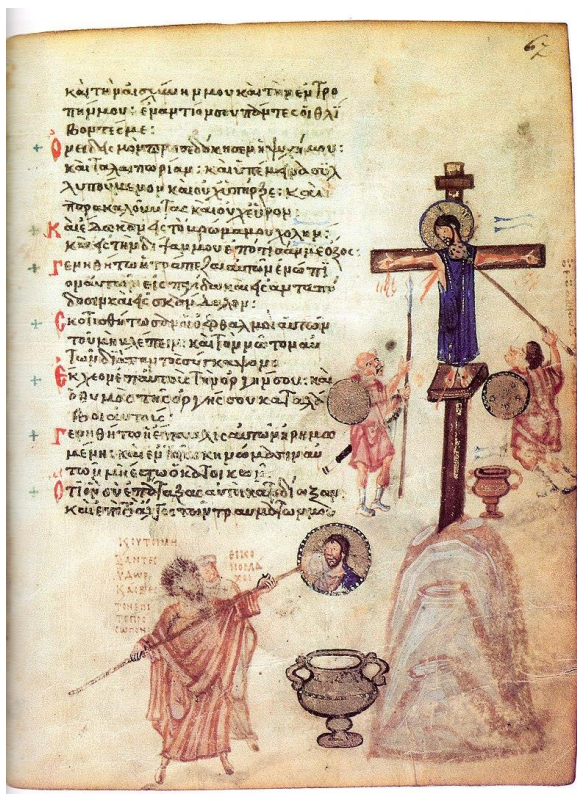 καὶ τὴν αἰσχύνην μου καὶ τὴν ἐντρο
πήν μου: ἐναντίον σου πάντες οἱ θλί
βοντές με:
Ὀνειδισμὸν προσεδόκησεν ἡ ψυχή μου:
καὶ ταλαιπωρίαν: καὶ ὑπέμεινα συλ
λυπούμενον καὶ οὐχ ὑπῆρξε: καὶ
παρακαλοῦντας καὶ οὐχ εὗρον:
Καὶ ἔδωκαν εἰς τὸ βρῶμα μου χολήν:
καὶ εἰς τὴν δίψαν μου ἐπότισάν με ὄξος:
Γενηθήτω ἡ τράπεζα αὐτῶν ἐνώπι
ον αὐτῶν εἰς παγίδα καὶ εἰς ἀνταπό
δοσιν καὶ εἰς σκάνδαλον:
Σκοτισθήτωσαν οἱ ὀφθαλμοὶ αὐτῶν
τοῦ μὴ βλέπειν: καὶ τὸν νῶτον αὐ
τῶν διὰ παντὸς σύγκαμψον:
Ἔκχεον ἐπ' αὐτοὺς τὴν ὀργήν σου: καὶ
ὁ θυμὸς τῆς ὀργῆς σου καταλά
βοι αὐτούς:
Γενηθήτω ἡ ἔπαυλις αὐτῶν ἠρημω
μένη: καὶ ἐν τοῖς σκηνώμασιν αὐ
τῶν μὴ ἔστω ὁ κατοικῶν:
Ὅτι ὃν σὺ ἐπάταξας αὐτοὶ κατεδίωξαν:
καὶ ἐπὶ τὸ ἄλγος τῶν τραυμάτων μου
Κ(ΑΙ) ΟΥΤΟΙ ΜΗ
ΞΑΝΤΕΣ
ΥΔΩΡ
ΚΑΙ ΑΣΒΕΣ
ΤΟΝ ΕΠΙ
ΤΟ ΠΡΟ
ΣΩΠΟΝ
ΕΙΚΟ
ΝΟΜΑ
ΧΟΙ
67